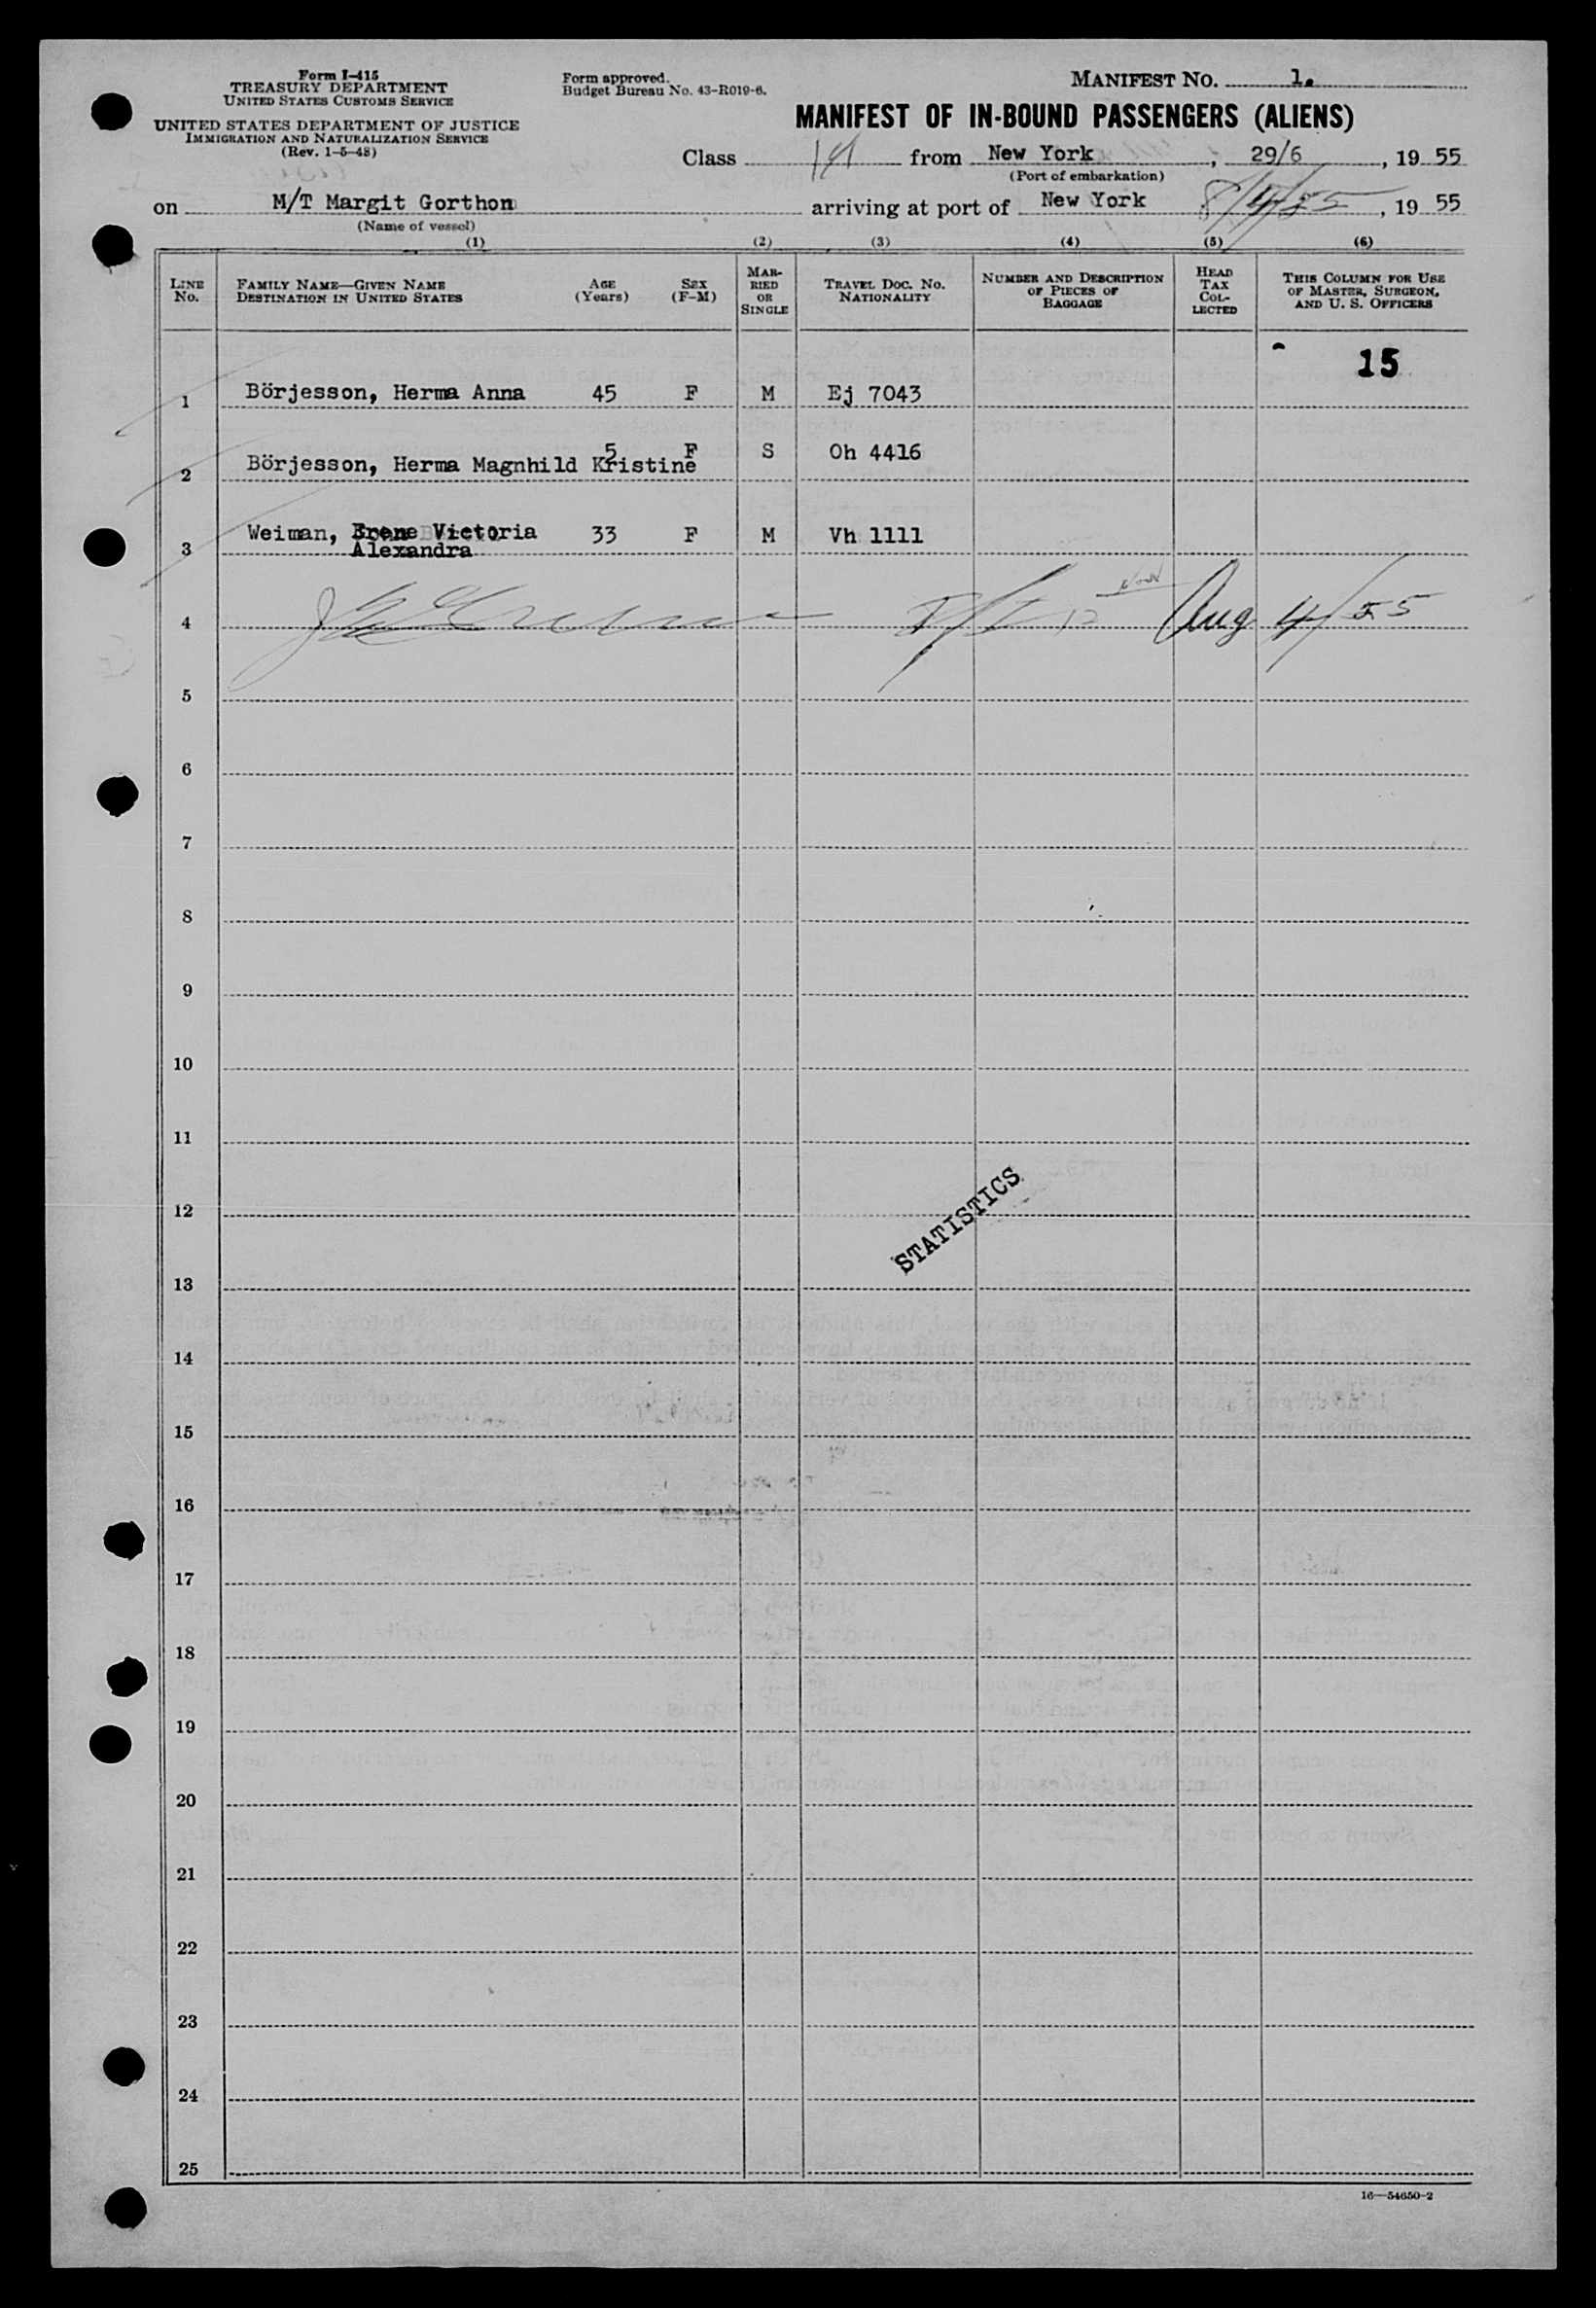 Form I-415
TREASURY DEPARTMENT
UNITED STATES CUSTOMS SERVICE
UNITED STATES DEPARTMENT OF JUSTICE
IMMIGRATION AND NATURALIZATION SERVICE
(Rev. 1-5-48)
Form approved.
Budget Bureau No. 43-R019-6.
MANIFEST NO. 1.
MANIFEST OF IN-BOUND PASSENGERS (ALIENS)
Class 1st from New York, 29/6, 19 55
(Port of embarkation)
on M/T Margit Gorthon arriving at port of New York 8/4/55, 19 55
(Name of vessel)
(1) (2) (3) (4) (5) (6)
LINE NO.
FAMILY NAME—GIVEN NAME
DESTINATION IN UNITED STATES
AGE (Years)
SEX (F-M)
MARRIED OR SINGLE
TRAVEL DOC. NO.
NATIONALITY
NUMBER AND DESCRIPTION
OF PIECES OF
BAGGAGE
HEAD TAX COLLECTED
THIS COLUMN FOR USE
OF MASTER, SURGEON,
AND U. S. OFFICERS
15
1 Börjesson, Herma Anna 45 F M Ej 7043
2 Börjesson, Herma Magnhild Kristine 5 F S Oh 4416
3 Weiman, Irene Victoria 33 F M Vh 1111
Alexandra
4 Aug 4/55
5
6
7
8
9
10
11
12
STATISTICS
13
14
15
16
17
18
19
20
21
22
23
24
25
16—54650-2